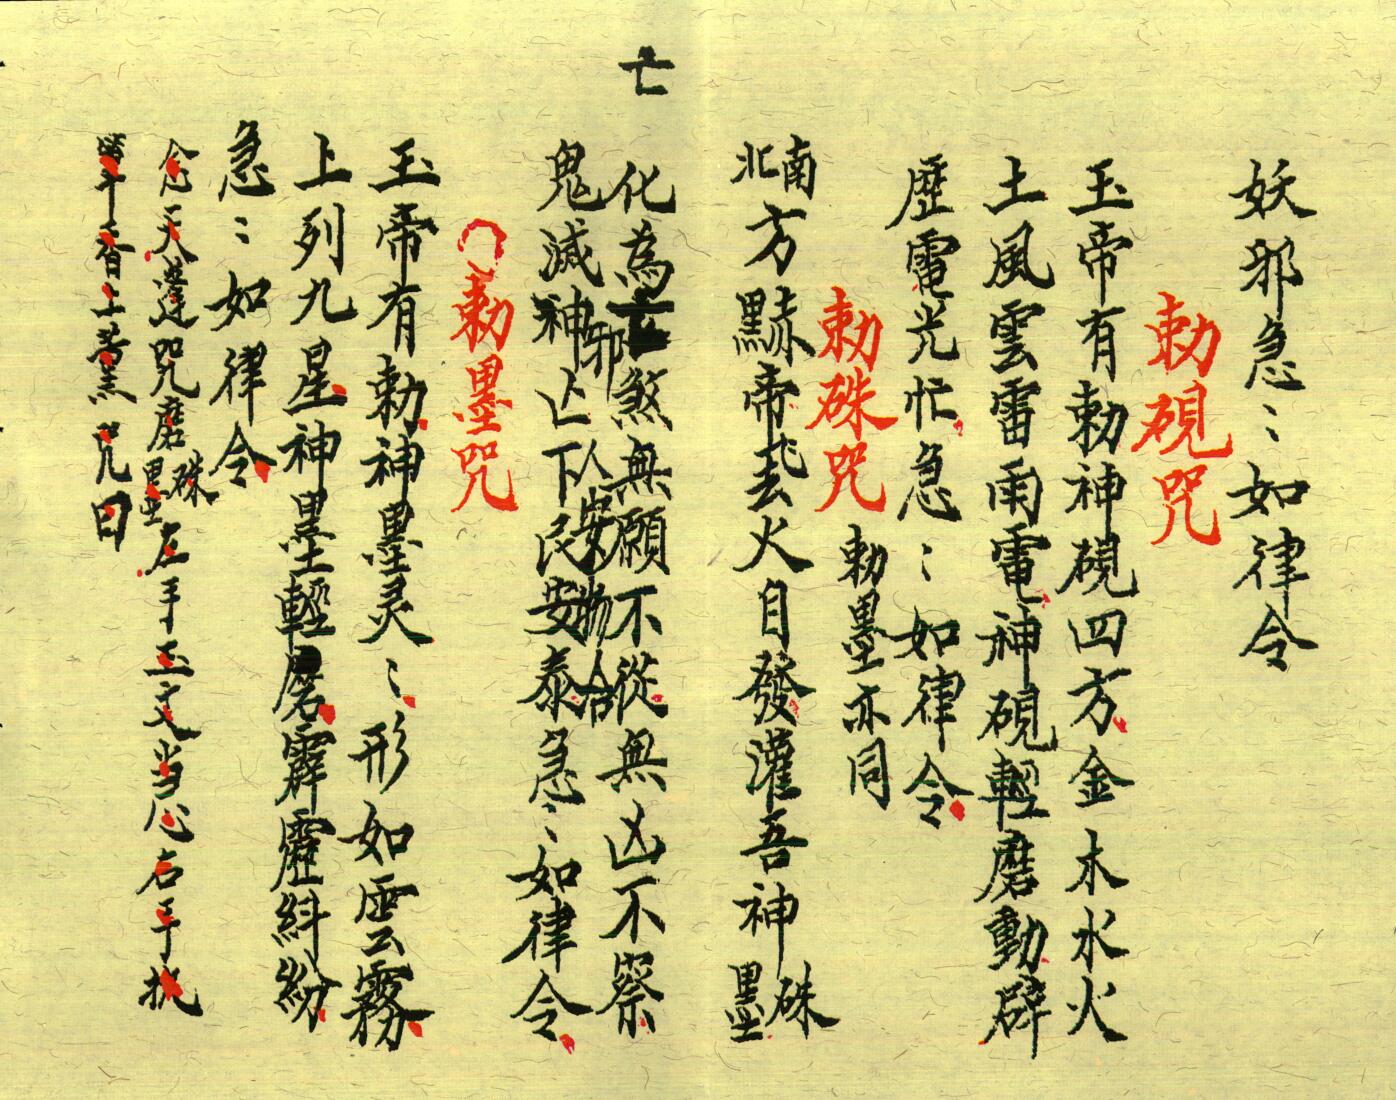 妖邪急〻如律令
敕硯咒
玉帝有勅神硯四方金木水火
土風雲雷雨電神硯輕磨動辟
歷電光忙急〻如律令
敕硃咒 勅墨亦同
南北方黑赤帝飛去火自發灌吾神硃墨
亡
化為煞無願不從無凶不察
邪人安物洽
鬼滅神亡下民安泰急〻如律令
敕墨咒
玉帝有勅神墨灵〻形如雲霧
上列九星神墨輕磨霹靂糾紛
急〻如律令
念天蓬咒磨硃墨左手玉文当心右手执
香上咒曰